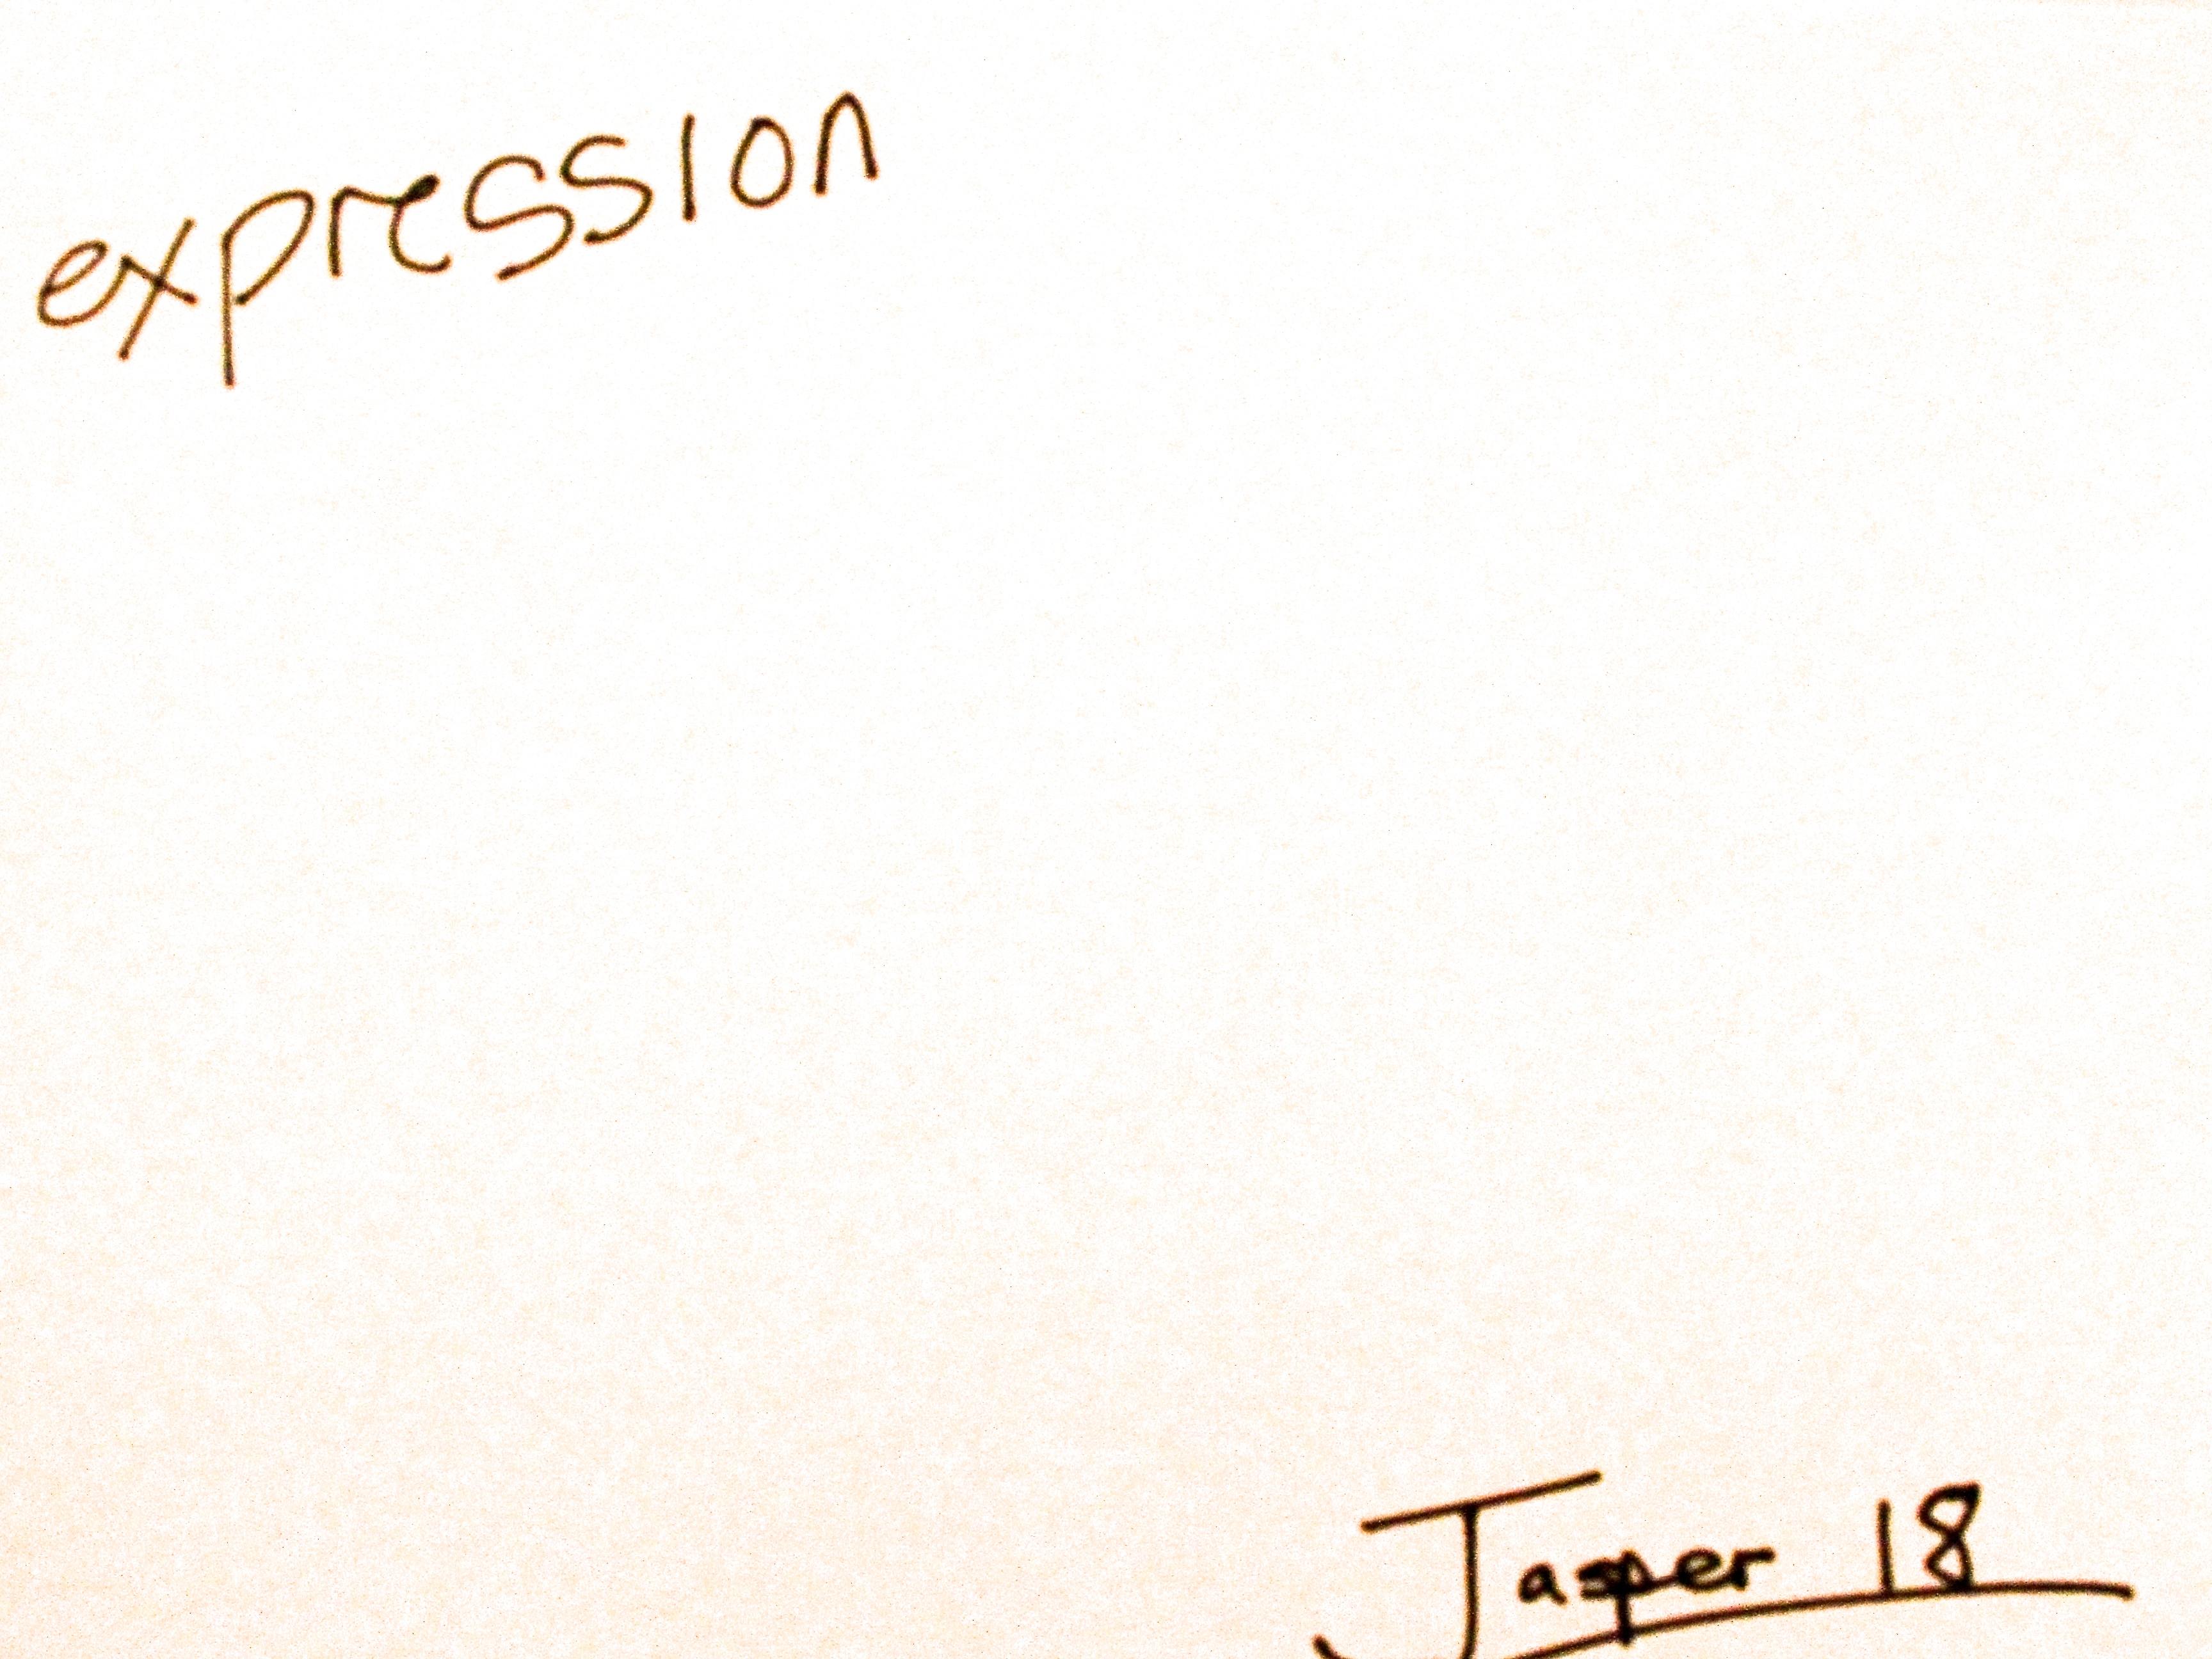 expression
Jasper 18